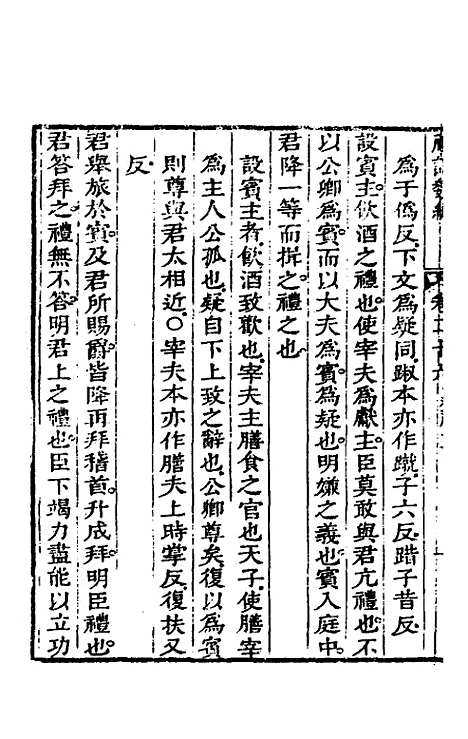 禮記纂編
為于偽反下文為疑同踧本亦作蹴子六反踖子昔反
設賓主飲酒之禮也使宰夫為獻主臣莫敢與君亢禮也不
以公卿為賓而以大夫為賓為疑也明嫌之義也賓入庭中
君降一等而揖之禮之也
設賓主者飲酒致歡也宰夫主膳食之官也天子使膳宰
為主人公孤也疑自下上致之辭也公卿尊矣復以為賓
則尊與君大相近○宰夫本亦作膳夫上時掌反復扶又
反
君舉旅於賓及君所賜爵皆降再拜稽首升成拜明臣禮也
君答拜之禮無不答明君上之禮也臣下竭力盡能以立功